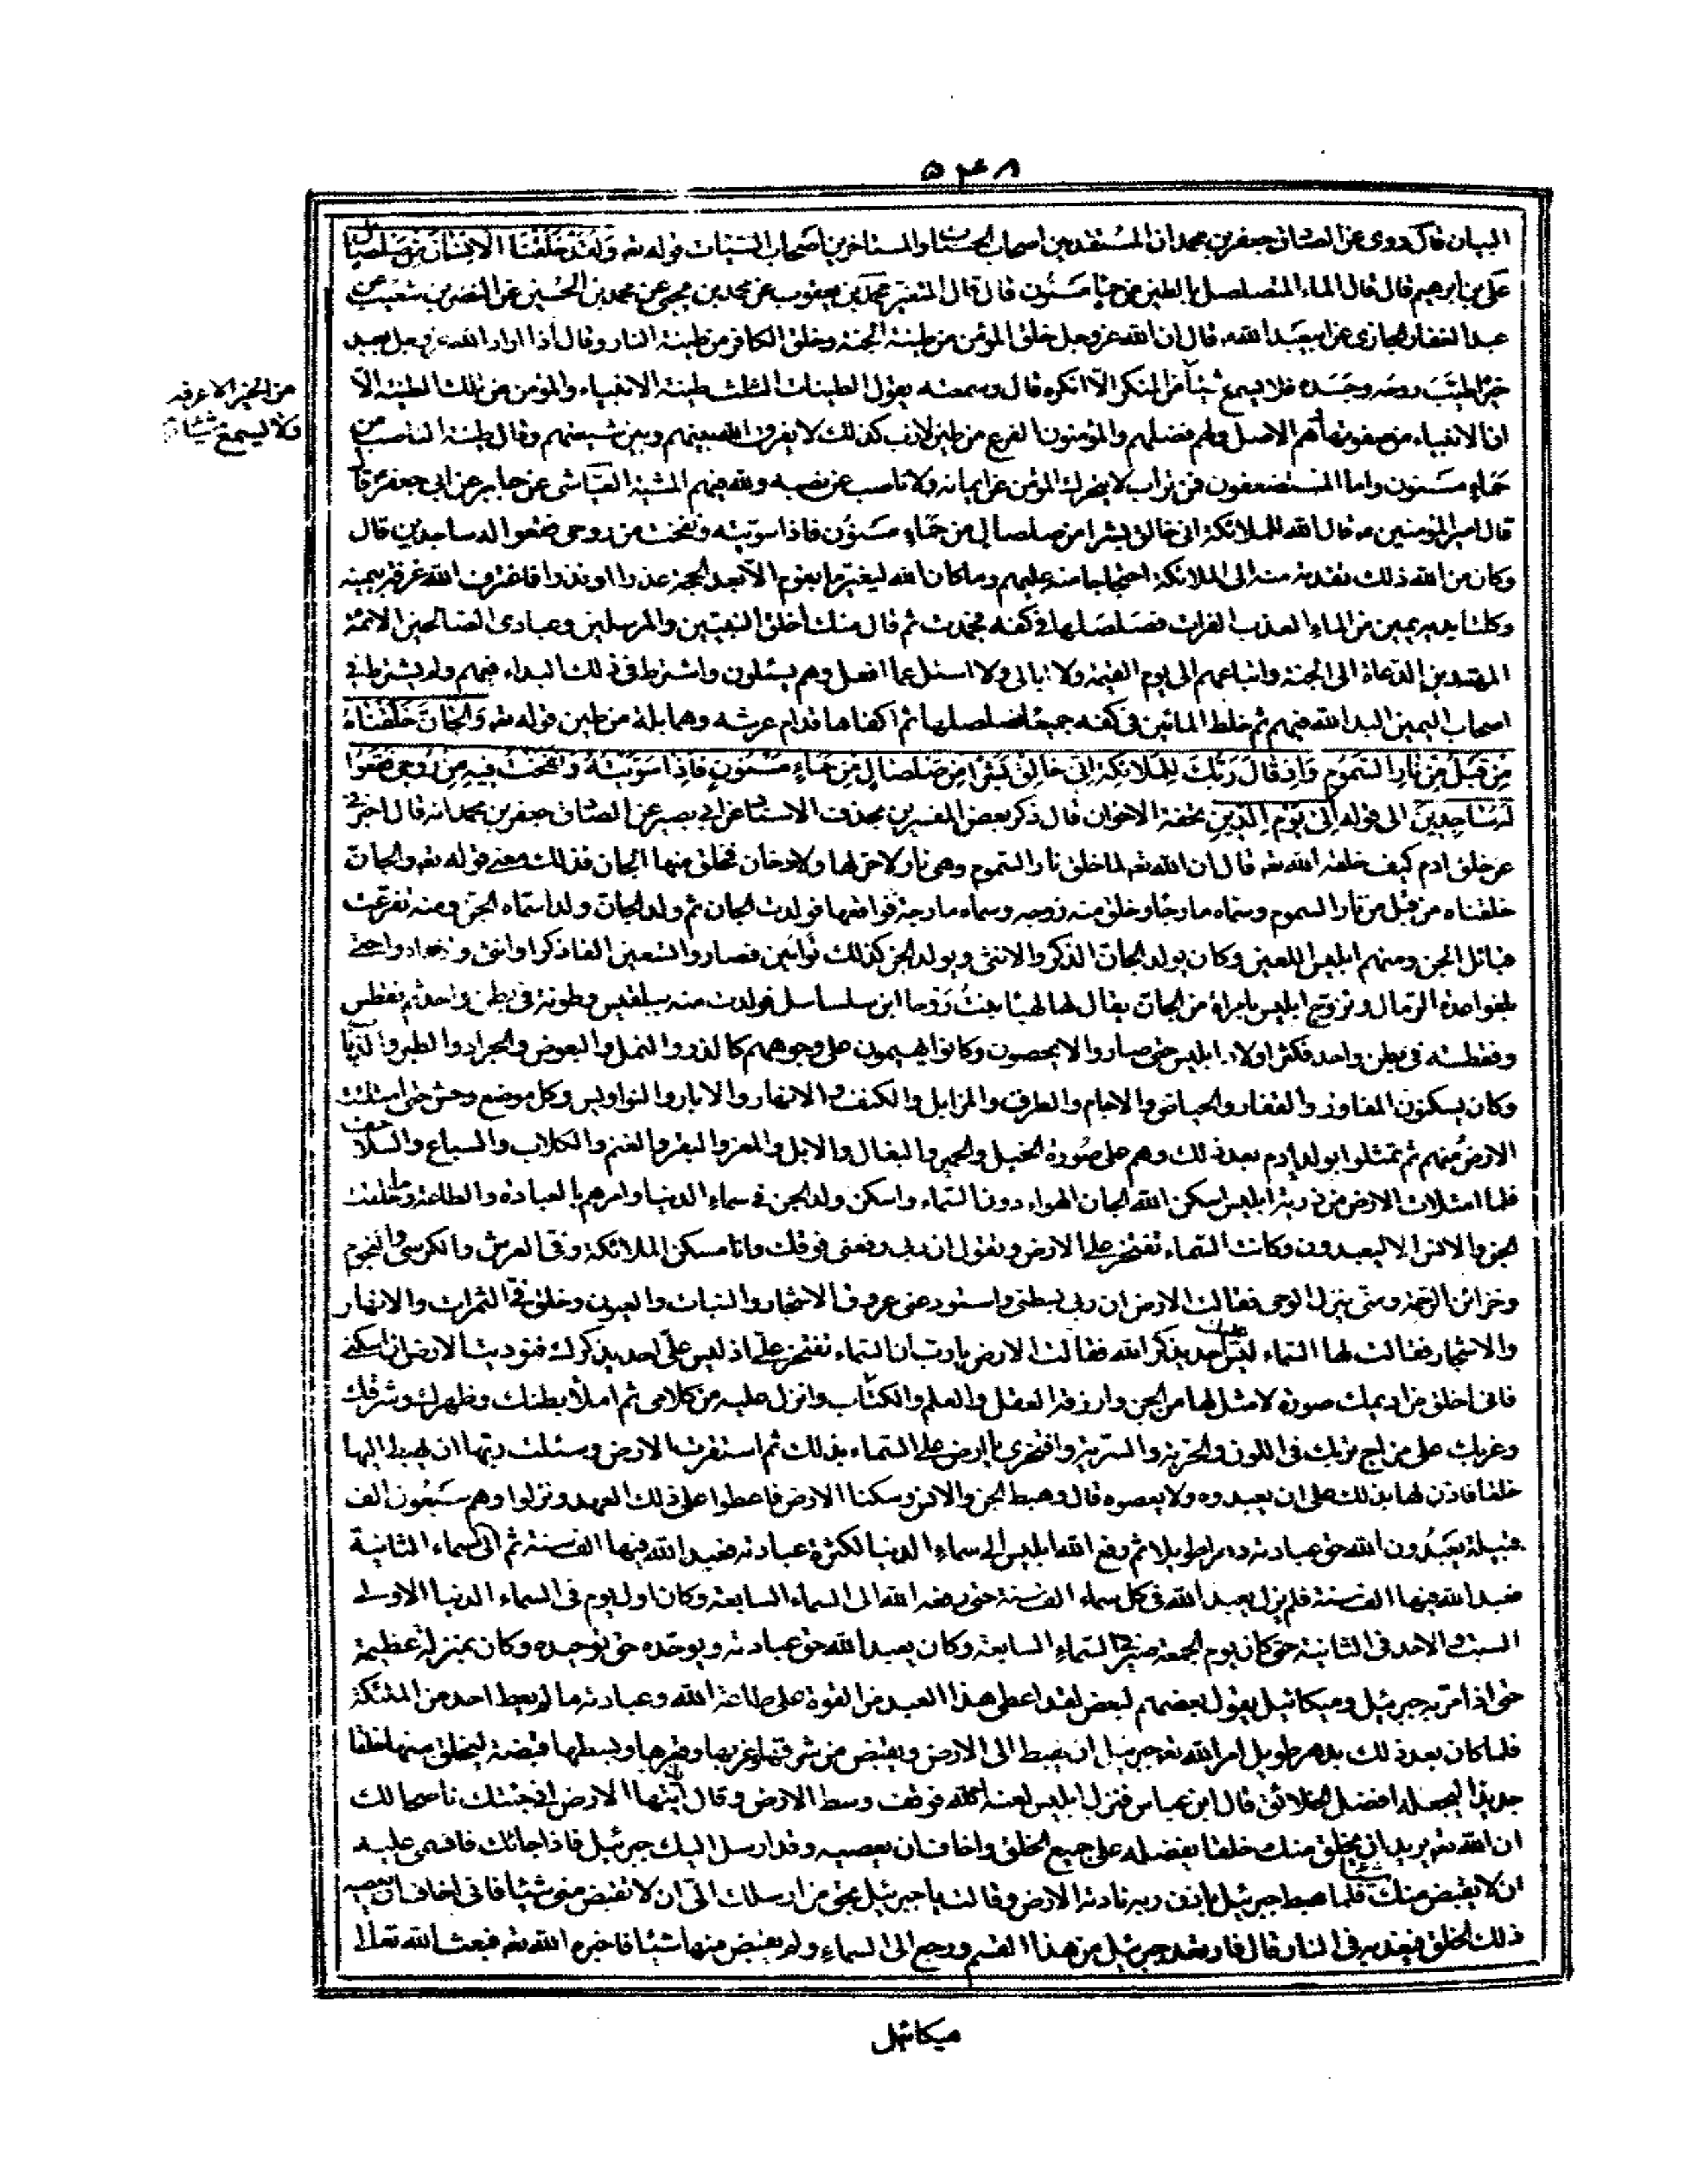 ٥٣٨
البيان قال روى عن الصادق جعفر بن محمد ان المستقدمين اصحاب الحسنات والمستأخرين اصحاب السيئات قوله تع وَلَقَدْ خَلَقْنَا الْاِنْسَانَ مِنْ صَلْصَالٍ
على بن ابرهيم قال قال الماء المتصلصل بالطين من حمإ مسنون قال قال المتغير محمد بن يعقوب عن محمد بن يحيى عن محمد بن الحسين عن النضر بن شعيب عن
عبد الغفار الجازى عن ابيعبد الله ع قال ان الله عز وجل خلق المؤمن من طينة الجنة وخلق الكافر من طينة النار وقال اذا اراد الله عز وجل بعبد
خيرا طيّب روحه وجسده فلا يسمع شيئا من المنكر الّا انكره قال وسمعته يقول الطينات الثلث طينة الانبياء والمؤمن من تلك الطينة الّا
من الخير الا عرفه
ولا يسمع شيئا
ان الانبياء من صفوتها هم الاصل ولهم فضلهم والمؤمنون الفرع من طين لازب كذلك لا يفرق الله بينهم وبين شيعتهم وقال طينة الناصب من
حمإ مسنون واما المستضعفون فمن تراب لا يتحرك المؤمن عن ايمانه ولا ناصب عن نصبه ولله فيهم المشية العيّاشى عن جابر عن ابى جعفر ع قال
قال امير المؤمنين ع قال الله للملائكة انى خالق بشرا من صلصال من حمإ مسنون فاذا سويته ونفخت من روحى فقعوا له ساجدين قال
وكان من الله ذلك تقدمة منه الى الملائكة احتجاجا منه عليهم وما كان الله ليغير ما بقوم الّا بعد الحجة عذرا او نذرا فاغترف الله غرفة بيمينه
وكلتا يديه يمين من الماء العذب الفرات فصلصلها فى كفه فجمدت ثم قال منك اخلق النبيين والمرسلين وعبادى الصالحين الائمة
المهتدين الدعاة الى الجنة واتباعهم الى يوم القيمة ولا ابالى ولا اسئل عما افعل وهم يسئلون واشترط فى ذلك البداء فيهم ولم يشترط فى
اصحاب اليمين البدا لله فيهم ثم خلط المائين فى كفه جميعا فصلصلها ثم اكفاها قدام عرشه وهما بلة من طين قوله تع وَالْجَانَّ خَلَقْنَاهُ
مِنْ قَبْلُ مِنْ نَارِ السَّمُومِ وَاِذْ قَالَ رَبُّكَ لِلْمَلَائِكَةِ اِنّى خَالِقٌ بَشَرًا مِنْ صَلْصَالٍ مِنْ حَمَاءٍ مَسْنُونٍ فَاِذَا سَوَّيْتُهُ وَنَفَخْتُ فِيهِ مِنْ رُوحِى فَقَعُوا
لَهُ سَاجِدِينَ الى قوله اِلى يَوْمِ الدِّينِ تحفة الاخوان قال ذكر بعض المفسرين بحذف الاسناد عن ابى بصير عن الصادق جعفر بن محمد انه قال اخبرنى
عن خلق ادم كيف خلقه الله تع قال ان الله تع لما خلق نار السموم وهى نار لا حر لها ولا دخان فخلق منها الجان فذلك معنى قوله تع والجان
خلقناه من قبل من نار السموم وسماه مارجا وخلق منه زوجه وسماه مارجة فواقعها فولدت الجان ثم ولد الجان ولدا سماه الجن ومنه تفرعت
قبائل الجن ومنهم ابليس اللعين وكان يولد الجان الذكر والانثى ويولد الجن كذلك توأمين فصاروا تسعين الفا ذكرا وانثى وازدادوا حتى
بلغوا عدة الرمال وتزوج ابليس بامراة من الجان يقال لها لهيا بنت روحا ابن سلساسل فولدت منه بيلقيس وطونة فى بطن واحد ثم نقطس
وفقطسه فى بطن واحد فكثر اولاد ابليس حتى صاروا لا يحصون وكانوا يهيمون على وجوههم كالذر والنمل والبعوض والجراد والطير والذباب
وكان يسكنون المفاوز والقفار والحياض والاجام والطرق والمزابل والكنف والانهار والابار والنواويس وكل موضع وحش حتى امتلئت
الارض منهم ثم تمثلوا بولد ادم بعد ذلك وهم على صورة الخيل والحمير والبغال والابل والمعز والبقر والغنم والكلاب والسباع والسلاحف
فلما امتلات الارض من ذرية ابليس اسكن الله الجان الهواء دون السماء واسكن ولد الجن فى سماء الدنيا وامرهم بالعبادة والطاعة وما خلقت
الجن والانس الا ليعبدون وكانت السماء تفتخر على الارض وتقول ان ربى رفعنى فوقك وانا مسكن الملائكة وفى العرش والكرسى والنجوم
وخزائن الرحمة ومنى ينزل الوحى فقالت الارض ان ربى بسطنى واستودعنى عروق الاشجار والنبات والعيون وخلق فىّ الثمرات والانهار
والاشجار فقالت لها السماء ليس عليك احد يذكر الله فقالت الارض يا رب ان السماء تفتخر علىّ اذ ليس علىّ احد يذكرك فنوديت الارض ان اسكنى
فانى اخلق من اديمك صورة لا مثل لها من الجن وارزقه العقل والعلم والكتاب وانزل عليه من كلامى ثم املأ بطنك وظهرك وشرقك
وغربك على مزاج تربك فى اللون والحرية والسترية وافتخرى يا ارض على السماء بذلك ثم استقرت الارض وسئلت ربها ان يهبط اليها
خلقا فاذن لها بذلك على ان يعبدوه ولا يعصوه قال وهبط الجن والانس وسكنا الارض فاعطوا على ذلك العهد ونزلوا وهم سبعون الف
قبيلة يعبدون الله حق عبادته دهرا طويلا ثم رفع الله ابليس الى سماء الدنيا لكثرة عبادته فعبد الله فيها الف سنة ثم الى السماء الثانية
فعبد الله فيها الف سنة فلم يزل يعبد الله فى كل سماء الف سنة حتى رفعه الله الى السماء السابعة وكان اول يوم فى السماء الدنيا الاولى
السبت والاحد فى الثانية حتى كان يوم الجمعة صير فى السماء السابعة وكان يعبد الله حق عبادته ويوحده حق توحيده وكان بمنزلة عظيمة
حتى اذا مر به جبرئيل وميكائيل يقول بعضهم لبعض لقد اعطى هذا العبد من القوة على طاعة الله وعبادته ما لم يعط احد من الملئكة
فلما كان بعد ذلك بدهر طويل امر الله تع جبرئيل ان يهبط الى الارض ويقبض من شرقها وغربها وقعرها وبسطها قبضة ليخلق منها خلقا
جديدا ليجعله افضل الخلائق قال ابن عباس فنزل ابليس لعنه الله فوقف وسط الارض وقال ايتها الارض انى جئتك ناصحا لك
ان الله تع يريد ان يخلق منك خلقا يفضله على جميع الخلق واخاف ان يعصيه وقد ارسل اليك جبرئيل فاذا جائك فاقسمى عليه
ان لا يقبض منك شيئا فلما هبط جبرئيل باذن ربه نادته الارض وقالت يا جبرئيل بحق من ارسلك الىّ ان لا تقبض منى شيئا فانى اخاف ان يعصيه
ذلك الخلق فيعذبه فى النار قال فارتعد جبرئيل من هذا القسم ورجع الى السماء ولم يقبض منها شيئا فاخبره الله تع فبعث الله تعالى
ميكائيل